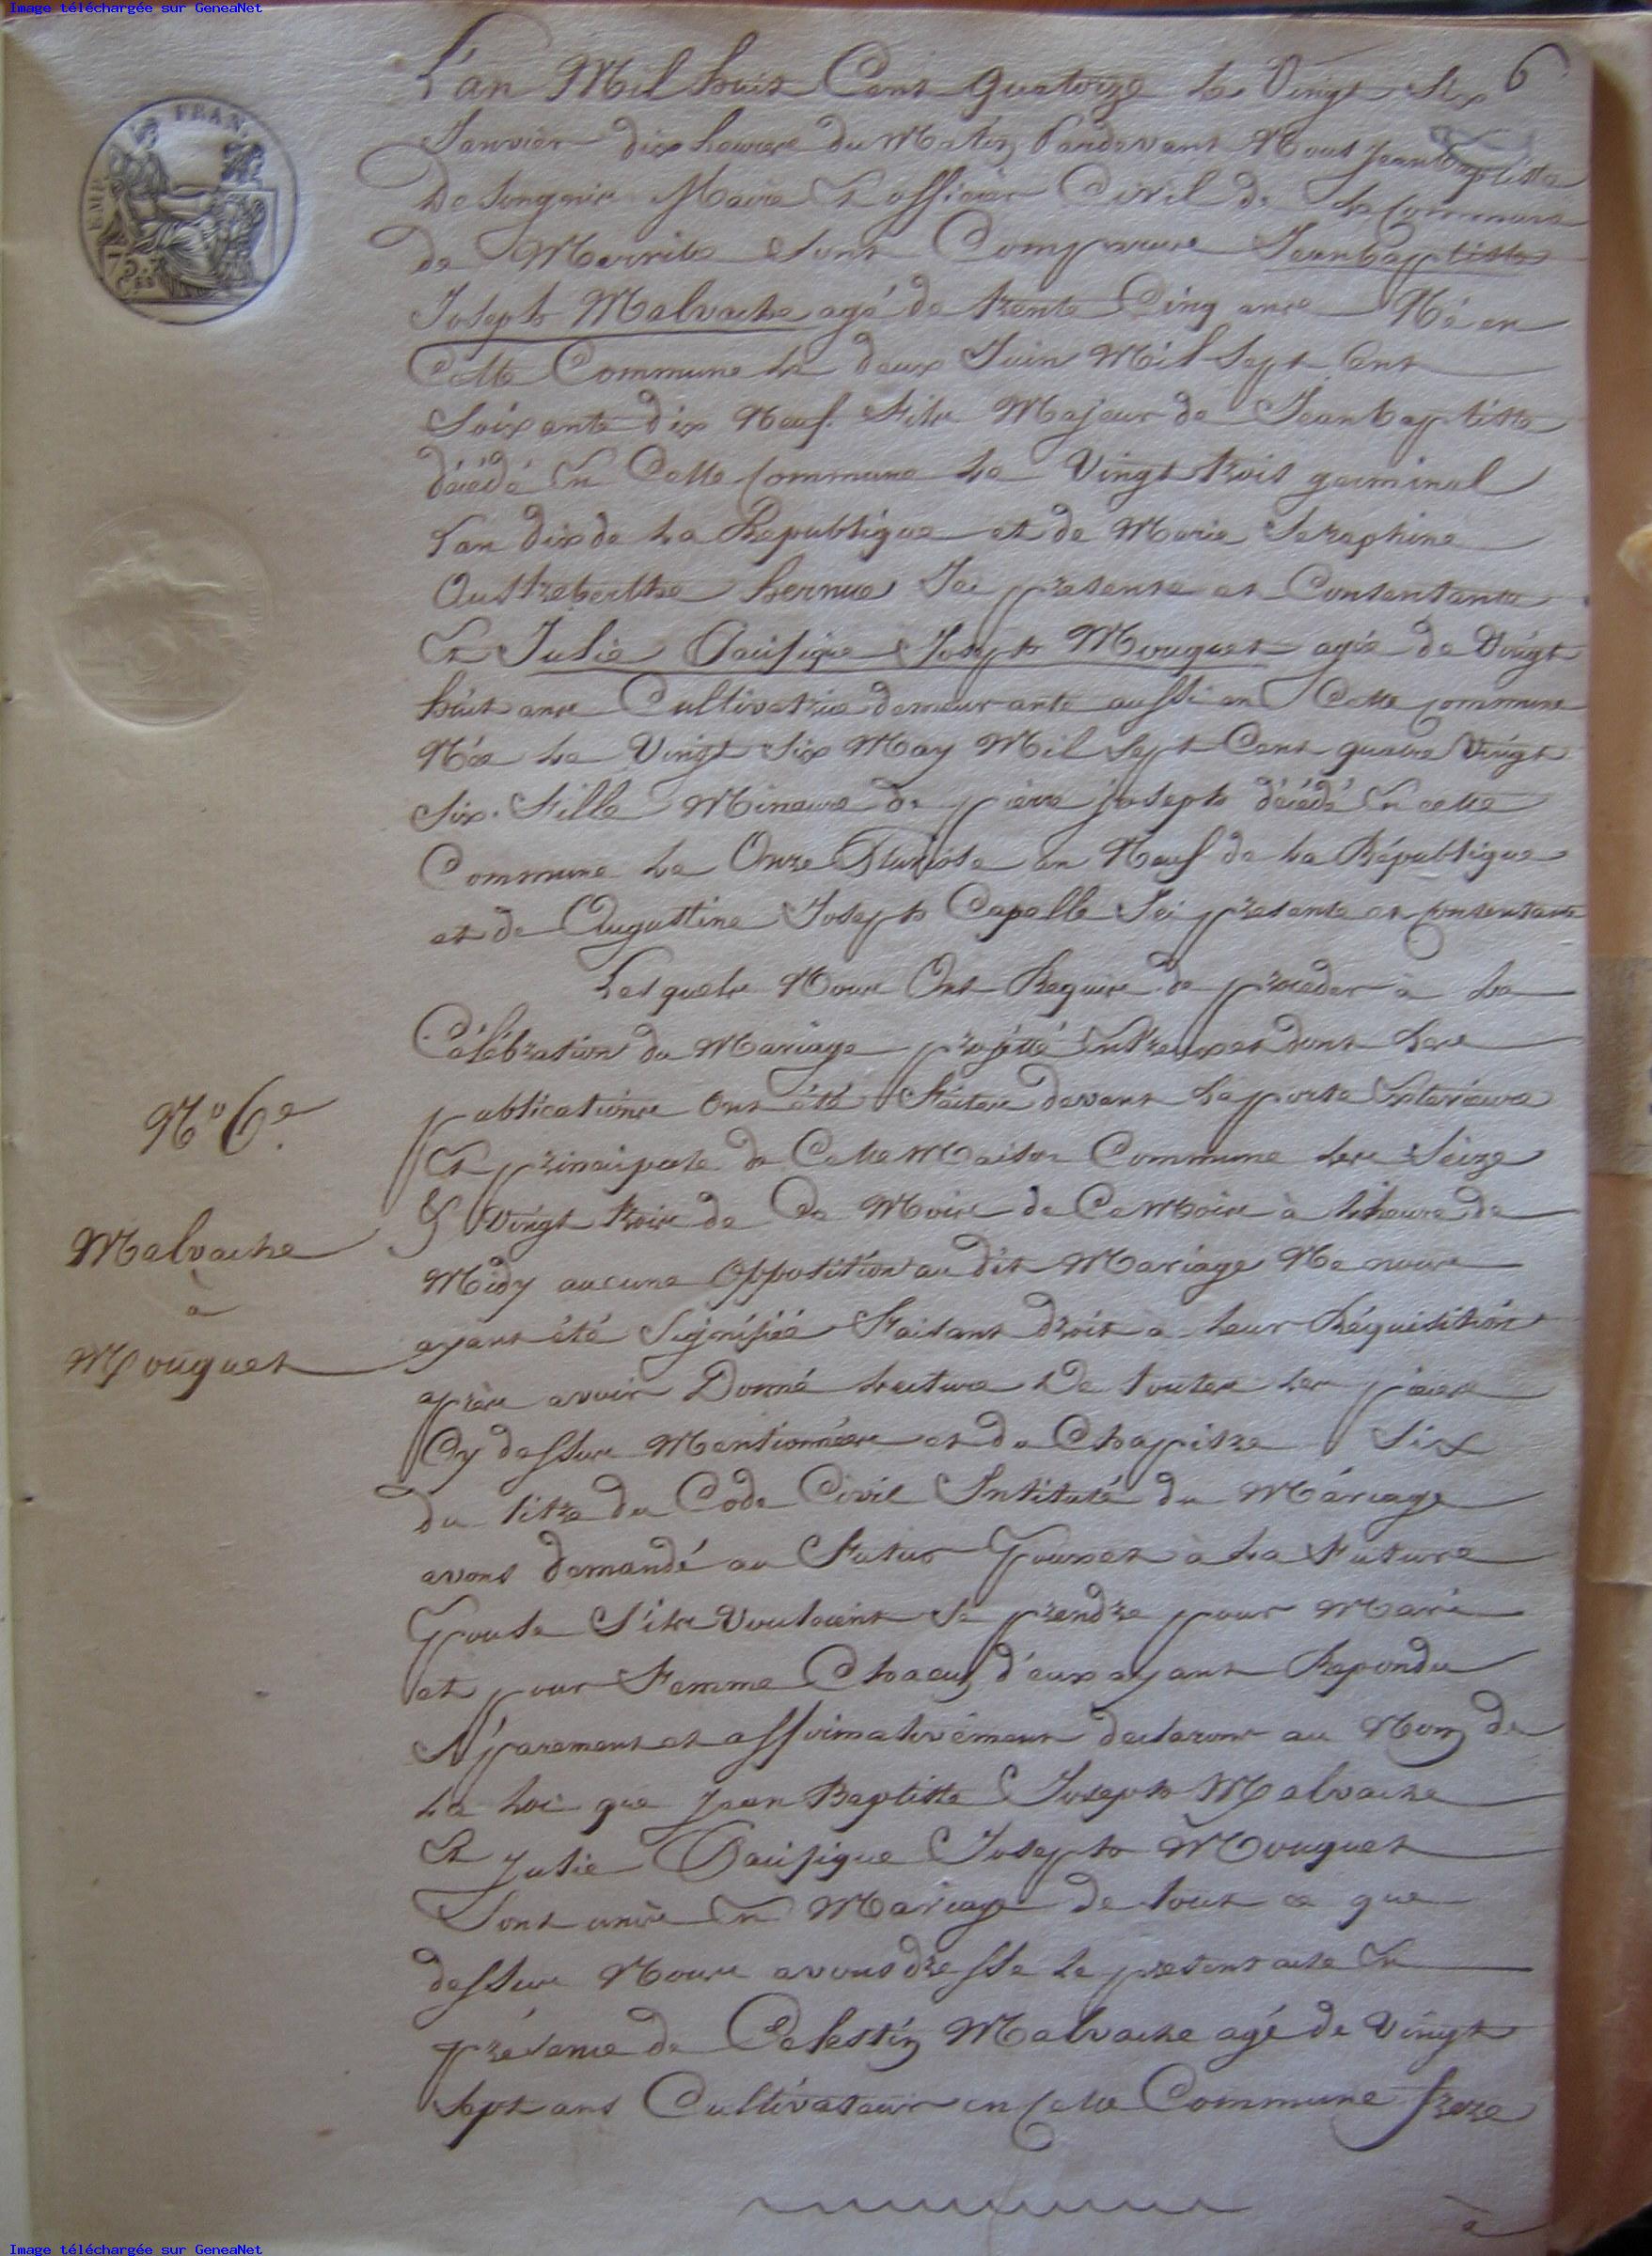 Image téléchargée sur GeneaNet
6
EMP. FRAN.
75 Cen
L'an Mil huit Cent quatorze le Vingt Six
Janvier dix heures du Matin Pardevant Nous Jean baptiste
Maire Et officier Civil de la Commune
de Sont Comparus Jeanbaptiste
Joseph Malvache agé de trente Cinq ans Né en
Cette Commune le deux Juin Mil Sept Cent
Soixante dix Neuf. Fils Majeur de Jeanbaptiste
décédé En Cette Commune le Vingt trois germinal
l'an dix de la Republique et de Marie Seraphine
Austreberthe hernue Ici presente et Consentante
Et Julie Pacifique Joseph Mouquet agée de Vingt
huit ans Cultivatrice demeurante aussi en Cette commune
Née le Vingt Six May Mil Sept Cent quatre Vingt
Six. Fille Mineure de pierre joseph décédé En cette
Commune le Onze Pluviose an Neuf de la République
et de Augustine Joseph Capelle Ici presente et consentante
Lesquels Nous Ont Requis de proceder à la
Célébration du Mariage projetté Entreux et dont les
publications ont été Faites devant la porte Exterieure
Et principale de Cette Maison Commune les Seize
& Vingt trois de Ce Mois de Ce Mois à l'heure de
Midy aucune Opposition au dit Mariage Ne nous
ayant été Signifiée Faisant droit a leur Réquisition
après avoir Donné lecture De toutes les pieces
Cy dessus Mentionnées et du Chapitre Six
du titre du Code Civil Intitulé du Máriage
avons demandé au Futur Epoux et à la Future
Epouse S'ils Vouloient se prendre pour Mari
et pour Femme Chacun d'eux ayant Repondu
Séparement et affirmativément declarons au Nom de
la loi que Jean Baptiste Joseph Malvache
Et Julie Pacifique Joseph Mouquet
Sont unis En Mariage de tout ce que
dessus Nous avons dressé le present acte En
présence de Celestin Malvache agé de Vingt
Sept ans Cultivateur en Cette Commune frere
à
No 6e
Malvache
à
Mouquet
Image téléchargée sur GeneaNet